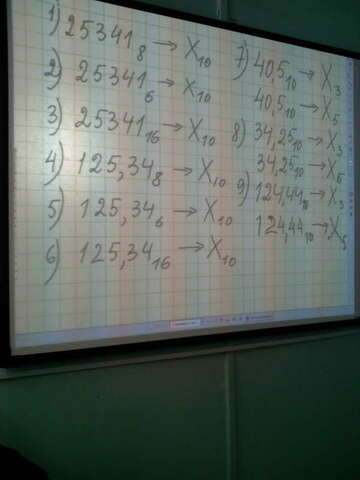 1) 25341₈ → X₁₀
2) 25341₆ → X₁₀
3) 25341₁₆ → X₁₀
4) 125,34₈ → X₁₀
5) 125,34₆ → X₁₀
6) 125,34₁₆ → X₁₀
7) 40,5₁₀ → X₃
40,5₁₀ → X₅
8) 34,25₁₀ → X₃
34,25₁₀ → X₅
9) 124,44₁₀ → X₃
124,44₁₀ → X₅